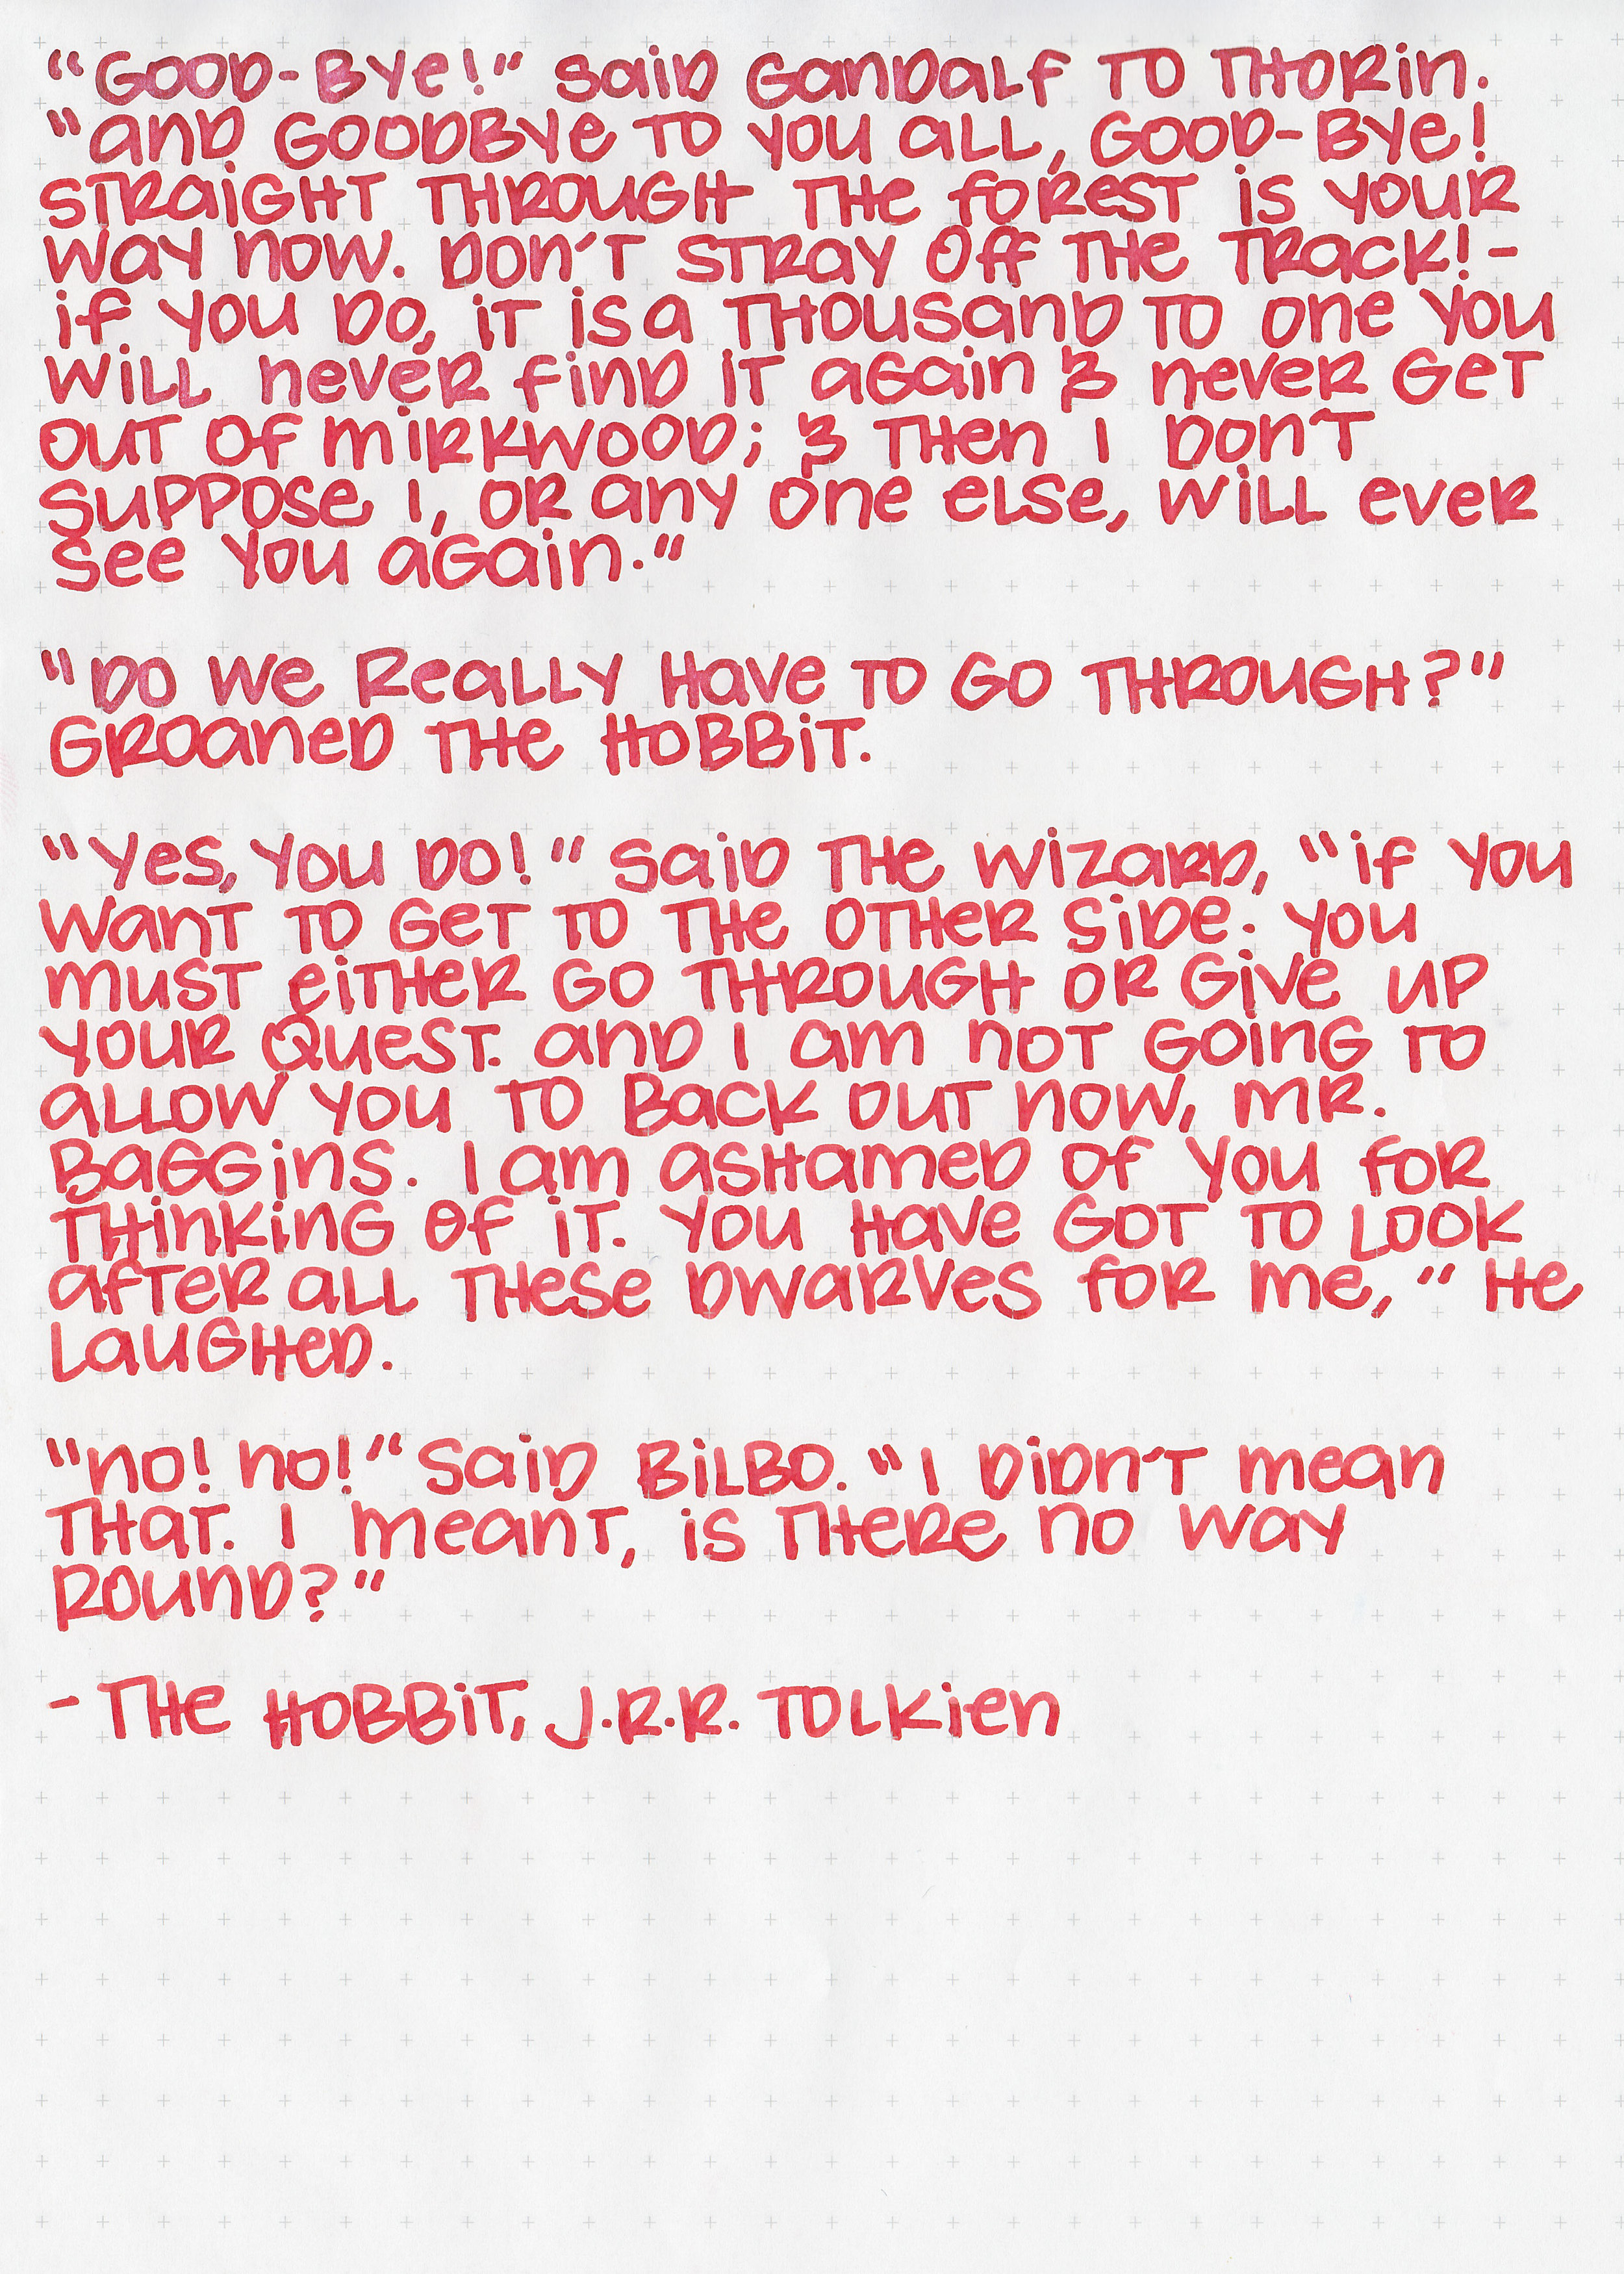 "Good-Bye!" said Gandalf to Thorin.
"And Goodbye to you all, Good-Bye!
Straight through the forest is your
way now. Don't stray off the track!-
if you do, it is a thousand to one you
will never find it again & never get
out of Mirkwood; & then I don't
suppose I, or any one else, will ever
see you again."
"Do we really have to go through?"
groaned the hobbit.
"Yes, you do!" said the wizard, "if you
want to get to the other side. You
must either go through or give up
your quest. And I am not going to
allow you to back out now, Mr.
Baggins. I am ashamed of you for
thinking of it. You have got to look
after all these dwarves for me," he
laughed.
"No! No!" said Bilbo. "I didn't mean
that. I meant, is there no way
round?"
- The Hobbit, J.R.R. Tolkien